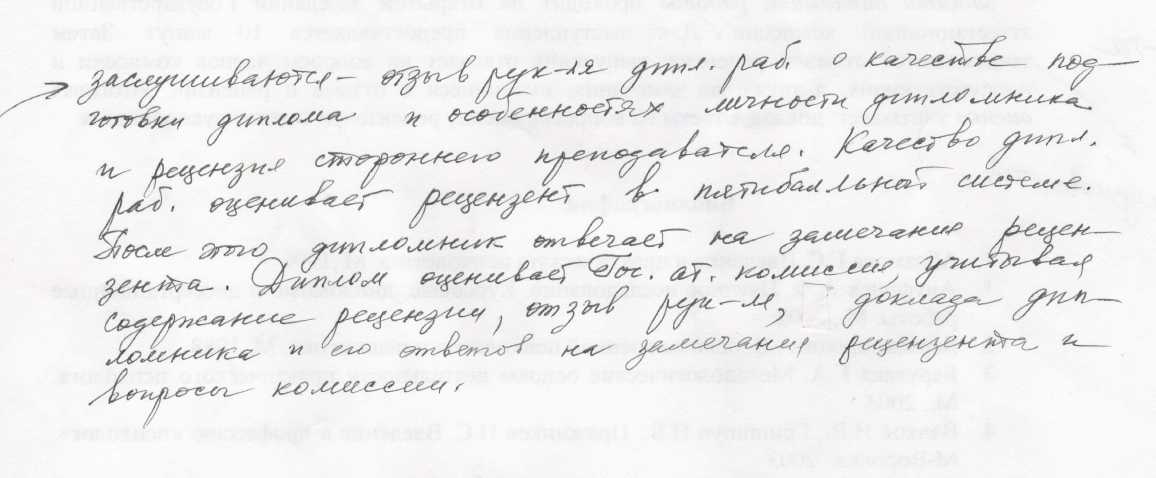 заслушиваются – отзыв рук-ля дипл. раб. о качестве под-
готовки диплома и особенностях личности дипломника
и рецензия стороннего преподавателя. Качество дипл.
раб. оценивает рецензент в пятибалльной системе.
После этого дипломник отвечает на замечания рецен-
зента. Диплом оценивает Гос. ат. комиссия учитывая
содержание рецензии, отзыв рук-ля, доклада дип-
ломника и его ответов на замечания рецензента и
вопросы комиссии.